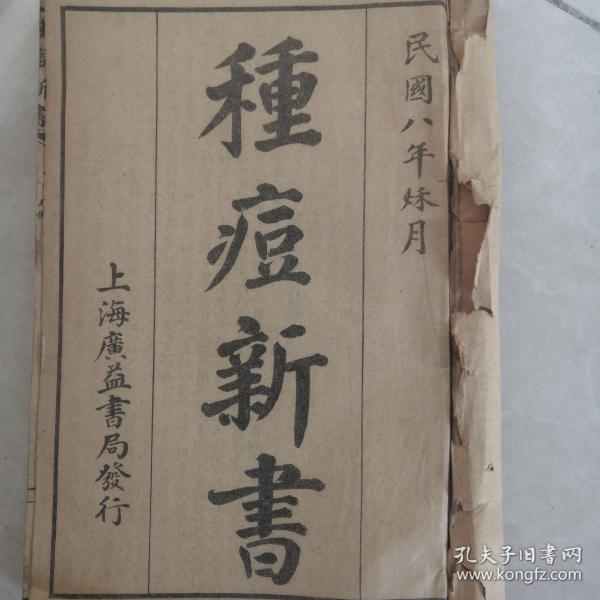 民國八年秌月
種痘新書
上海廣益書局發行
孔夫子旧書网
www.kongfz.com